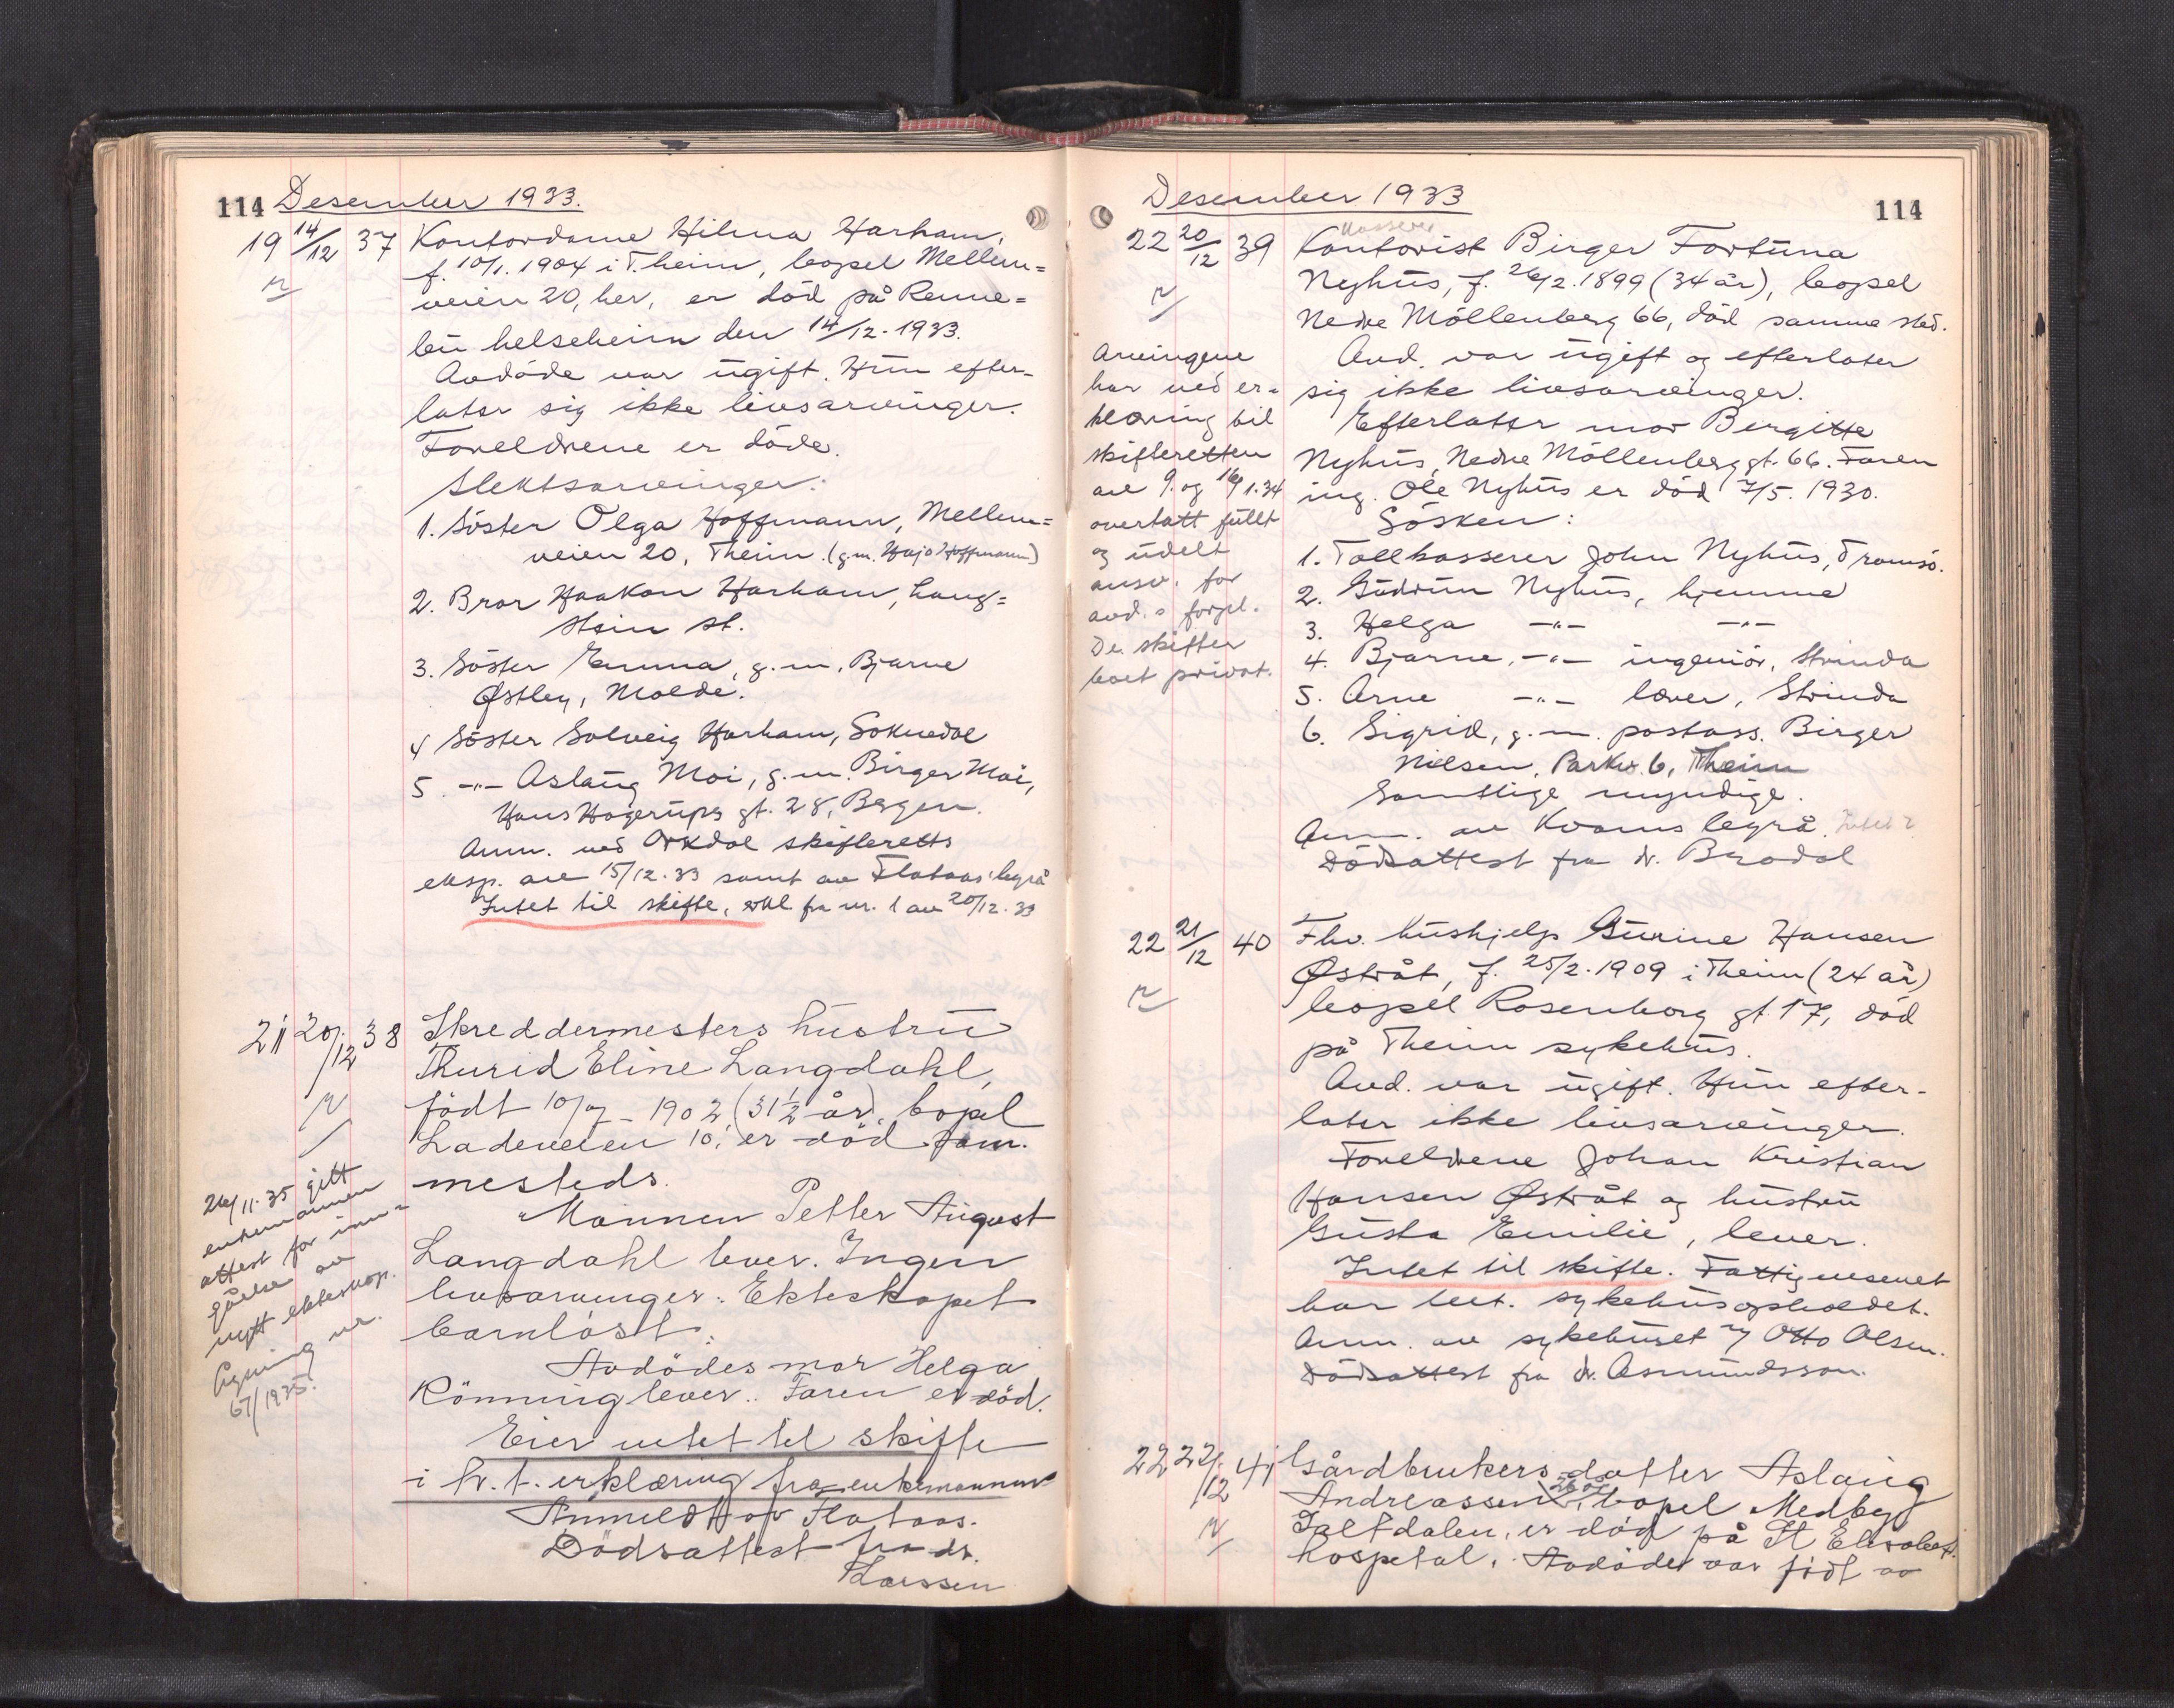 114 Desember 1933.
19 14/12 37 Kontordame Hilma Harham,
f. 10/1. 1904 i T.heim, bopæl Mellem=
veien 20, her, er död på Renne=
bu helseheim den 14/12. 1933.
Avdöde var ugift. Hun efter-
later sig ikke livsarvinger.
Foreldrene er döde.
Slektsarvinger:
1. Söster Olga Hoffmann, Mellem=
veien 20, Theim. (g.m. Hajo Hoffmann)
2. Bror Haakon Harham, Lang=
stein st.
3. Söster Emma, g.m. Bjarne
Østley, Molde.
4 Söster Solveig Harham, Soknedal
5. -"- Aslaug Moi, g.m. Birger Moi,
Hans Hagerups gt. 28, Bergen.
Anm. ved Orkdal skifteretts
eksp. av 15/12.33 samt av Flataas' begrå
Intet til skifte, erkl. fra nr. 1 av 20/12.33
21 20/12 38 Skreddermesters hustru
Thurid Eline Langdahl,
födt 10/7 - 1902 (31½ år), bopel
Ladeveien 10, er död sam-
mesteds.
Mannen Petter August
Langdahl lever. Ingen
livsarvinger. Ekteskapet
barnlöst.
Avdödes mor Helga
Rönning lever. Faren er död.
Eier intet til skifte
i h. t. erklæring fra enkemannen
Anmeldt av Flataas.
Dödsattest fra dr.
Larssen
26/11.35 gitt
enkemannen
attest for inn=
gåelse av
nytt ekteskap.
Løpning nr.
67/1935.
Desember 1933
114
Kasserer
22 20/12 39 Kontorist Birger Fortuna
Nyhus, f. 26/2. 1899 (34 år), bopel
Nedre Möllenberg 66, död samme sted.
Avd. var ugift og efterlater
sig ikke livsarvinger.
Efterlater mor Bergitte
Nyhus, Nedre Möllenberg gt. 66. Faren
ing. Ole Nyhus er död 7/5. 1930.
Sösken:
1. Tollkasserer John Nyhus, Tromsö.
2. Gudrun Nyhus, hjemme
3. Helga -"- -"-
4. Bjarne, -"- ingeniör, Strinda
5. Arne -"- lærer, Strinda
6. Sigrid, g.m. postass. Birger
Nielsen, Parkv. 6, Theim
Samtlige myndige.
Anm. av Kvams begrå. Intet?
Dödsattest fra dr. Brodal
Arvingene
har ved er=
klæring til
skifteretten
av 9. og 16/1.34
overtatt fullt
og udelt
ansv. for
avd.s forpl.
De skifter
boet privat.
22 21/12 40 Fhv. hushjelp Gurine Hansen
Østråt, f. 25/2. 1909 i Theim (24 år)
bopel Rosenborg gt 17, död
på Theim sykehus.
Avd. var ugift. Hun efter-
later ikke livsarvinger.
Foreldrene Johan Kristian
Hansen Østråt og hustru
Gusta Emilie, lever.
Intet til skifte. Fattigvesenet
har bet. sykehusopholdet.
Anm. av sykehuset v/ Otto Olsen.
Dödsattest fra dr. Asmundsson.
22 22/12 41 Gårdbrukers datter Aslaug
Andreassen, bopel Medby
Saltdalen, er död på St Elisabet.
hospital. Avdöde var födt av